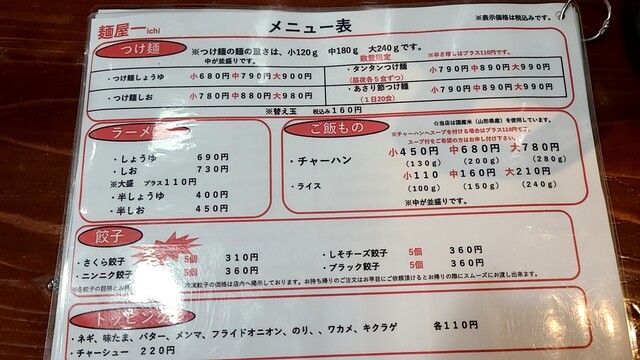 麺屋一ichi
メニュー表
※表示価格は税込みです。
つけ麺
※つけ麺の麺の重さは、小120g 中180g 大240gです。
中が並盛りです。
数量限定
※辛さ増しはプラス110円です。
・つけ麺しょうゆ 小680円 中790円 大900円
・タンタンつけ麺 小790円 中890円 大990円
（昼夜各5食ずつ）
・つけ麺しお 小780円 中880円 大980円
・あさり節つけ麺 小790円 中890円 大990円
（1日20食）
※替え玉 税込み160円
ラーメン
・しょうゆ 690円
・しお 730円
※大盛 プラス110円
・半しょうゆ 400円
・半しお 450円
ご飯もの
☆当店は国産米（山形県産）を使用しています。
※チャーハンへスープを付ける場合はプラス110円です。
スープ付をご希望の方はお申し付け下さい。
・チャーハン 小450円 中680円 大780円
（130g） （200g） （280g）
・ライス 小110 中160円 大210円
（100g） （150g） （240g）
※中が並盛り。
餃子
・さくら餃子 5個 310円
・しそチーズ餃子 5個 360円
・ニンニク餃子 5個 360円
・ブラック餃子 5個 360円
※各餃子の説明とお持 冷凍餃子の価格は店内へ掲示しております。お持ち帰りのご注文はお早目にご依頼頂けるとお帰りの際にスムーズにお渡し出来ます。
トッピング
・ネギ、味たま、バター、メンマ、フライドオニオン、のり、、ワカメ、キクラゲ 各110円
・チャーシュー 220円